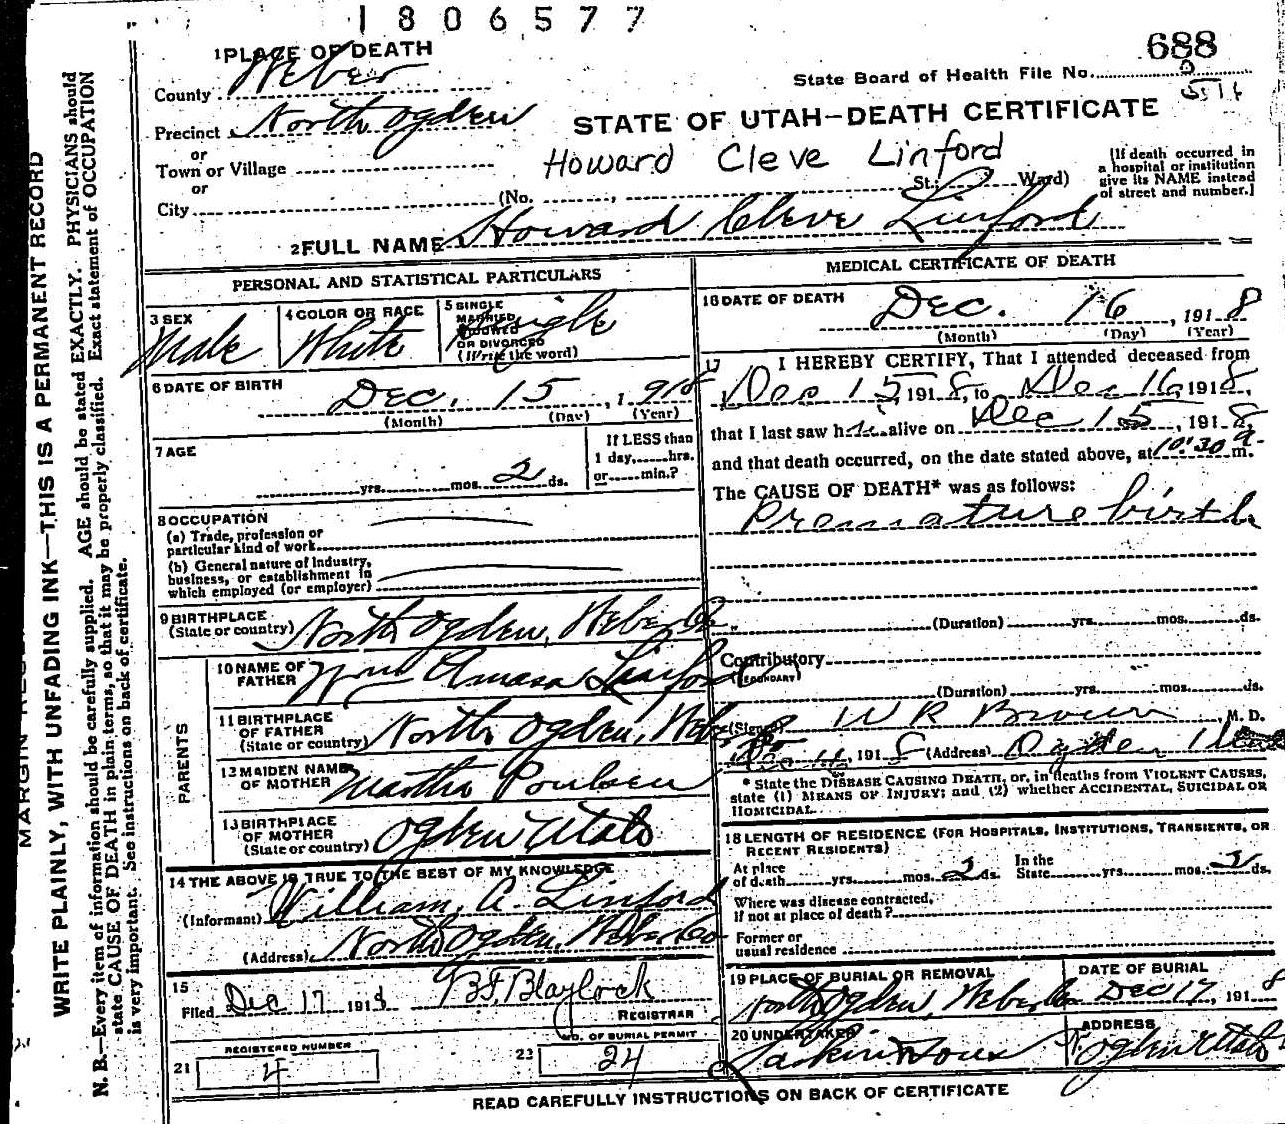 1806577
688
State Board of Health File No.
1 PLACE OF DEATH
County Weber
Precinct North Ogden
or
Town or Village
or
City
STATE OF UTAH—DEATH CERTIFICATE
Howard Cleve Linford
(No. , St.; Ward)
[If death occurred in
a hospital or institution
give its NAME instead
of street and number.]
2 FULL NAME Howard Cleve Linford
PERSONAL AND STATISTICAL PARTICULARS
3 SEX
Male
4 COLOR OR RACE
White
5 SINGLE
MARRIED
WIDOWED
OR DIVORCED
(Write the word)
Single
6 DATE OF BIRTH
Dec. 15, 1918
(Month) (Day) (Year)
7 AGE
yrs. mos. 2 ds.
If LESS than
1 day, hrs.
or min.?
8 OCCUPATION
(a) Trade, profession or
particular kind of work
(b) General nature of industry,
business, or establishment in
which employed (or employer)
9 BIRTHPLACE
(State or country) North Ogden, Weber Co.
PARENTS
10 NAME OF
FATHER Wm Amasa Linford
11 BIRTHPLACE
OF FATHER
(State or country) North Ogden, Weber
12 MAIDEN NAME
OF MOTHER Martha Poulsen
13 BIRTHPLACE
OF MOTHER
(State or country) Ogden Utah
14 THE ABOVE IS TRUE TO THE BEST OF MY KNOWLEDGE
(Informant) William A. Linford
(Address) North Ogden, Weber Co
15
Filed Dec 17 1918 B.F. Blaylock
REGISTRAR
REGISTERED NUMBER
21 4
NO. OF BURIAL PERMIT
22 24
MEDICAL CERTIFICATE OF DEATH
16 DATE OF DEATH
Dec. 16, 1918
(Month) (Day) (Year)
17 I HEREBY CERTIFY, That I attended deceased from
Dec 15, 1918, to Dec 16, 1918,
that I last saw him alive on Dec 15, 1918,
and that death occurred, on the date stated above, at 10:30 a. m.
The CAUSE OF DEATH* was as follows:
Premature birth
(Duration) yrs. mos. ds.
Contributory
(SECONDARY)
(Duration) yrs. mos. ds.
(Signed) W R Brown, M. D.
1918 (Address) Ogden Utah
* State the DISEASE CAUSING DEATH, or, in deaths from VIOLENT CAUSES,
state (1) MEANS OF INJURY; and (2) whether ACCIDENTAL, SUICIDAL OR
HOMICIDAL.
18 LENGTH OF RESIDENCE (FOR HOSPITALS, INSTITUTIONS, TRANSIENTS, OR
RECENT RESIDENTS)
At place
of death yrs. mos. 2 ds.
In the
State yrs. mos. 2 ds.
Where was disease contracted,
if not at place of death?
Former or
usual residence
19 PLACE OF BURIAL OR REMOVAL
North Ogden, Weber Co
DATE OF BURIAL
Dec 17, 1918
20 UNDERTAKER
Larkin & Sons
ADDRESS
Ogden Utah
READ CAREFULLY INSTRUCTIONS ON BACK OF CERTIFICATE
WRITE PLAINLY, WITH UNFADING INK—THIS IS A PERMANENT RECORD
N. B.—Every item of information should be carefully supplied. AGE should be stated EXACTLY. PHYSICIANS should
state CAUSE OF DEATH in plain terms, so that it may be properly classified. Exact statement of OCCUPATION
is very important. See instructions on back of certificate.